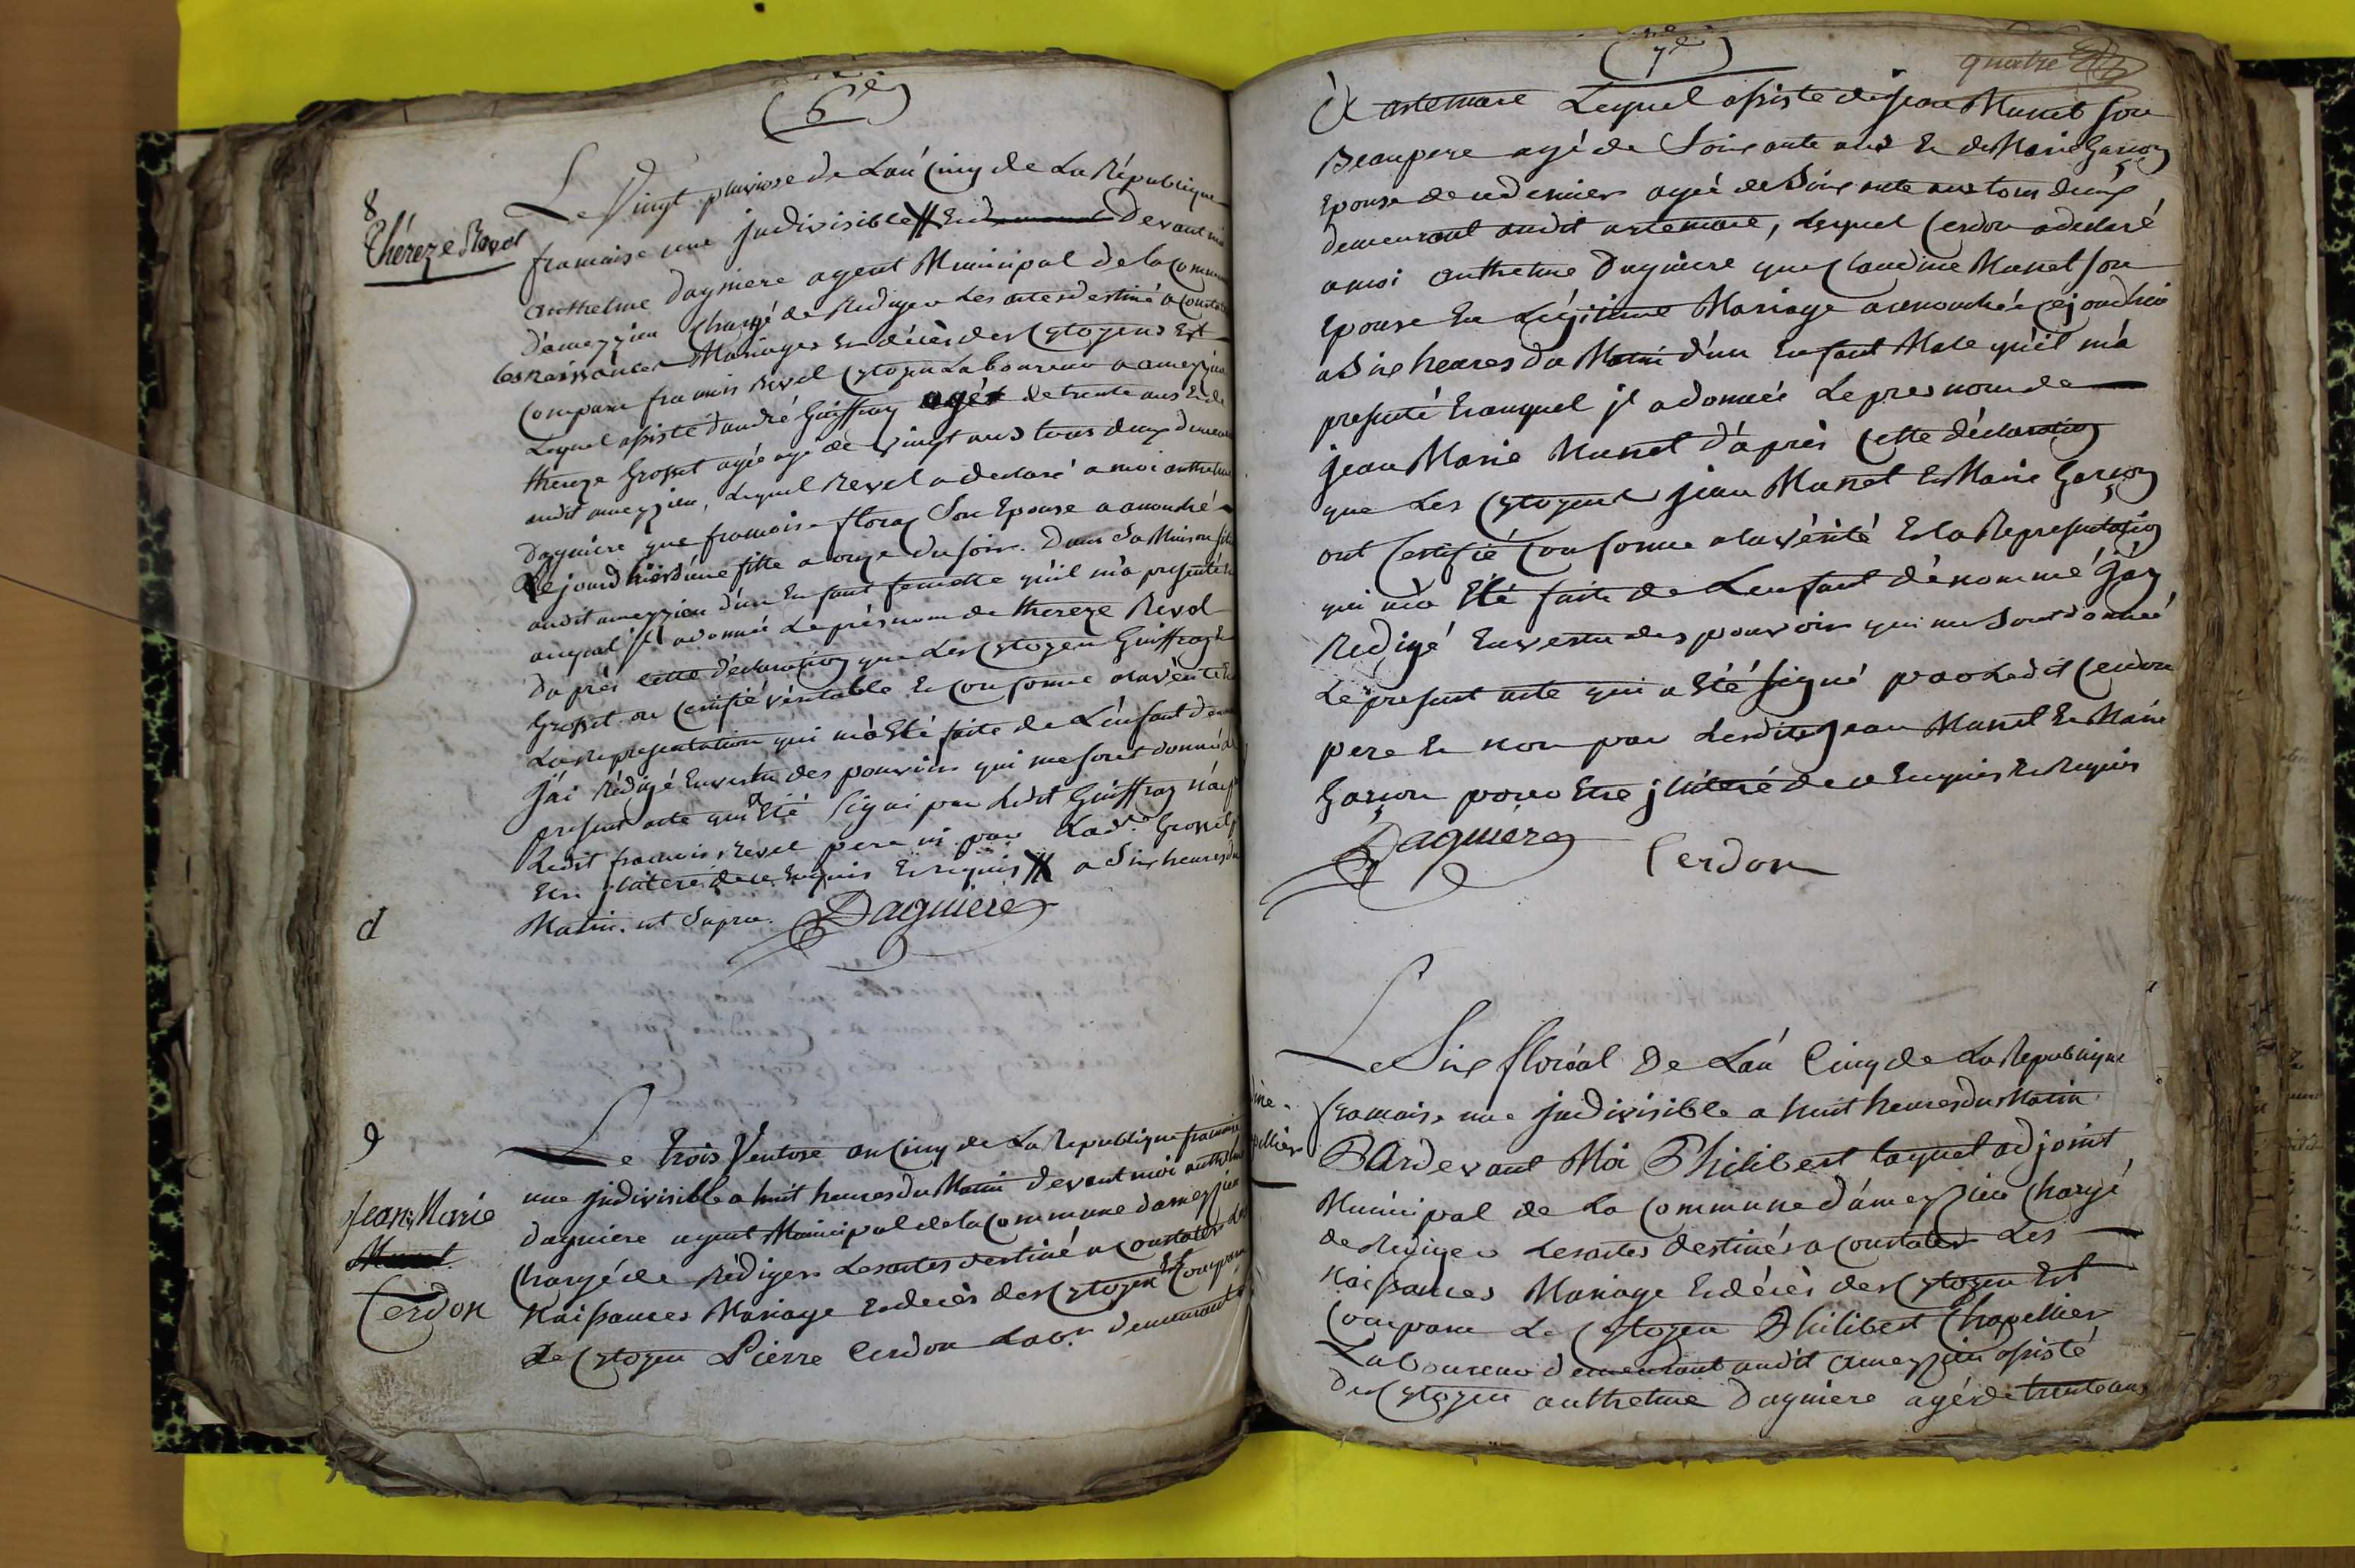 (6e)
8
Thérèze Revol
Le Vingt pluviose de Lan Cinq de La République
francaise une jndivisible devant moi
anthelme Dagniere agent Municipal de la Commune
d'ameyzieu Chargé de Rediger Les actes destiné a Constater
les naissances Mariages En décès des Cytoyens Est
Comparu francois Revol Cytoyen Laboureur a ameyzieu
Lequel assisté d'andré Guiffray agé de trente ans Et de
thereze Grosset agée agé de vingt ans tous deux demeurant
audit ameyzieu, Lequel Revol a declaré a moi anthelme
Dagniere que francoise floray Son Epouse a accouché
Le jourd hier d'une fille a onze du soir. Dans Sa Maison
audit ameyzieu d'un Enfant femelle qu'il m'a presenté
auquel jl a donnée Le présnom de thereze Revol
Daprès cette déclaration que Les Cytoyen Guiffray Et
Grosset on Certifié véritable Et Conforme a la vérité Et
La Representation qui m'a Eté faite de L'enfant
J'ai Rédigé En vertu des pouvoirs qui me sont donné Le
present acte qui a Eté Signé par Ledit Guiffray
Ledit francois Revol pere ni par Ladte Grosset
En jlliteré de ce Enquis Et requis a Six heures du
Matin. ut Supra. Dagniere
d
9
Jean Marie
Munet
Cerdon
Le trois Ventose an Cinq de La Republique francaise
une jndivisible a huit heures du Matin devant moi anthelme
Dagniere agent Municipal de la Commune dameyzieu
Chargé de Rédiger Les actes destiné a Constater Les
Naissances Mariage En decès des Cytoyen Est Comparu
Le Cytoyen Pierre Cerdon Labr. demeurant
(7e)
quatre
a artemare Lequel assisté de Jean Munet son
Beaupere agé de Soixante ans Et de Marie Garion
Epouse de ce dernier agée de Soixante ans tous deux
demeurant audit artemare, Lequel Cerdon a declaré
a moi Anthelme Dagniere que Claudine Munet son
Epouse En Légitime Mariage a accouchée cejourdhui
a Six heures du Matin d'un Enfant Male qu'il m'a
presenté Et auquel jl a donnée Le presnom de
jean Marie Munet d'après Cette déclaration
que Les Cytoyens jean Munet Et Marie Garion
ont Certifié Conforme a la vérité Et la Representation
qui m'a Eté faite de Lenfant dénommé J'ay
Redigé En vertu des pouvoirs qui me Sont donné
Le present acte qui a Eté signé par Ledit Cerdon
pere Et non par Lesdits Jean Munet Et Marie
Garion pour Etre jlliteré de ce Enquis Et Requis
Dagniere Cerdon
Le Six floréal De Lan Cinq de La Republique
francaise une jndivisible a huit heures du Matin
Pardevant Moi Philibert taquet adjoint
Municipal de La Commune d'ameyzieu Chargé
de Rediger Les actes destinés a Constater Les
Naissances Mariage Et décès des Cytoyen Est
Comparu Le Cytoyen Philibert Chapellier
Laboureur demeurant audit ameyzieu assisté
Des Cytoyen anthelme Dagniere agé de trente ans